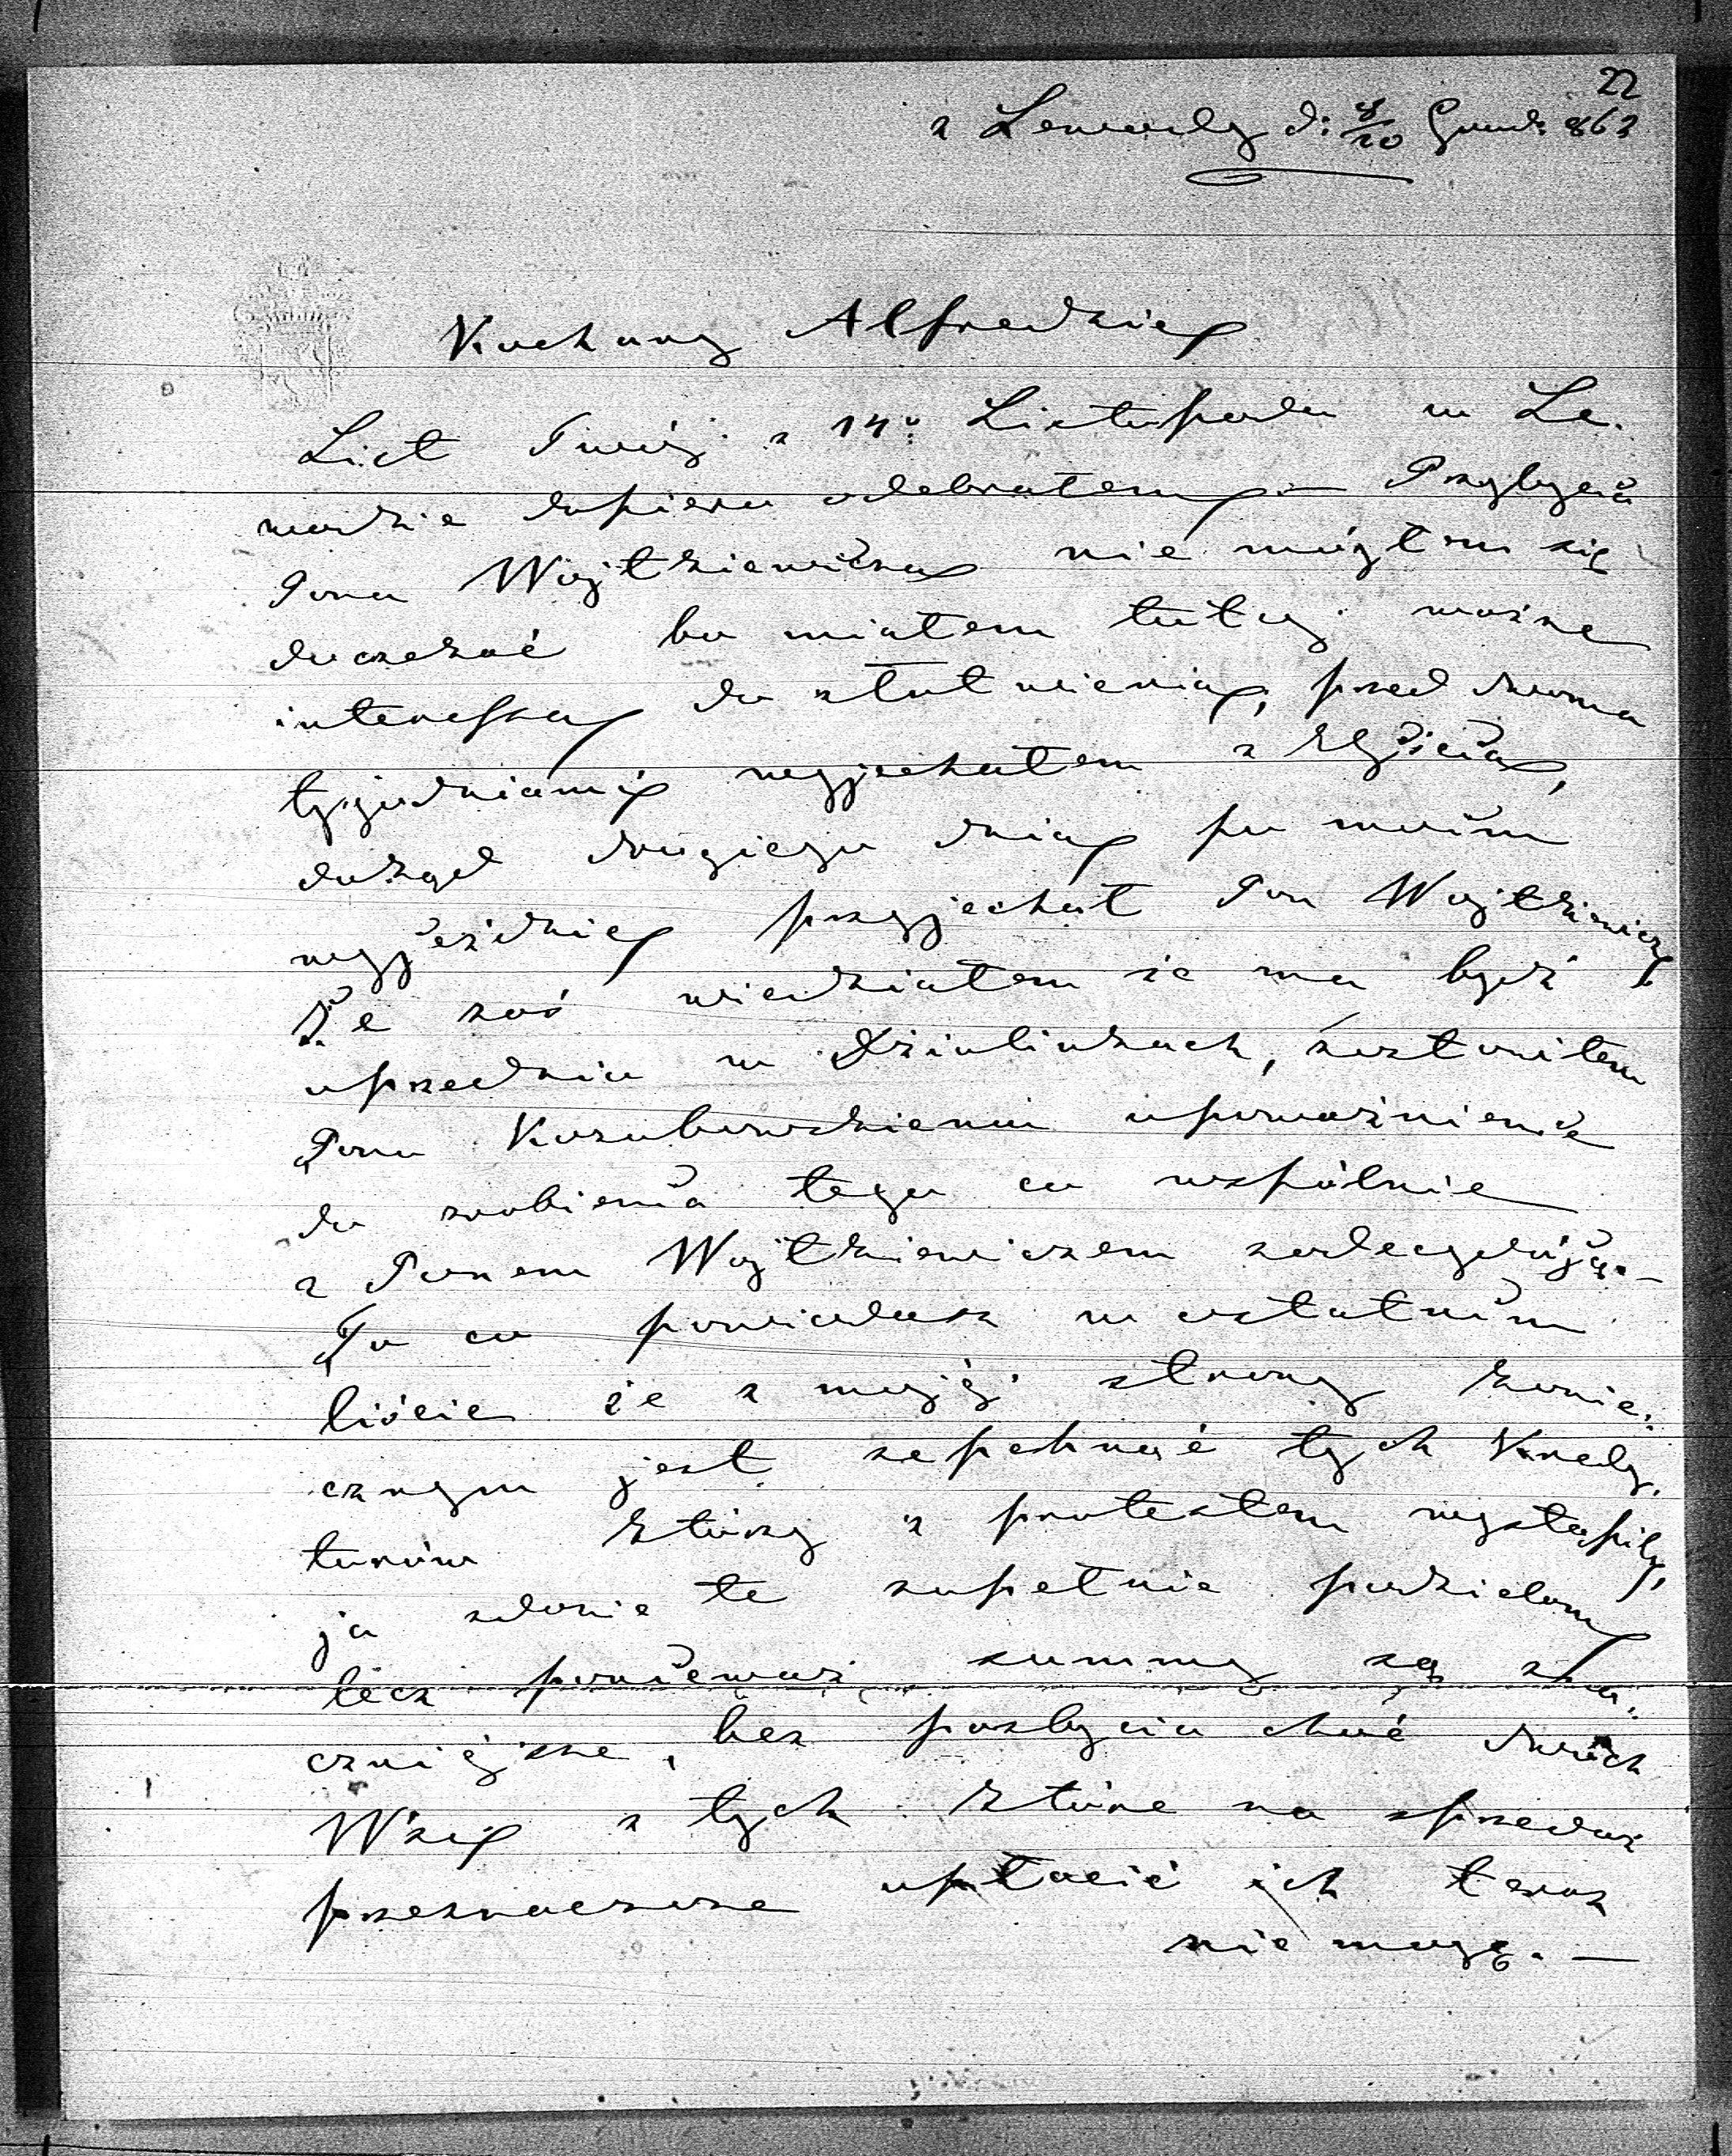 22
z Lewady d: 8/20 Grud: 863
Kochany Alfredzie
List Twój z 14º Listopada w Le-
wadzie dopiero odebrałem — Przybycia
Pana Wojtkiewicza nie mógłem się
doczekać bo miałem tutaj ważne
interessa do załatwienia, przed dwoma
tygodniami wyjechałem z Kijowa,
dokąd drugiego dnia po moim
wyjeździe przyjechał Pan Wojtkiewicz
Że zaś wiedziałem że ma bydź
uprzednio w Dziulinkach, zostawiłem
Panu Kozubowskiemu upoważnienie
do zrobienia tego co wspólnie
z Panem Wojtkiewiczem zadecydują. —
To co powiadasz w ostatnim
liście że z mojéj strony konie-
cznym jest zepchnąć tych Kredy-
torów którzy z protestem wystąpily,
ja zdanie te zupełnie podzielam
lecz ponieważ summy są zna-
czniéjsze, bez pozbycia choć dwóch
Wsi z tych które na sprzedaż
przeznaczone opłacić ich teraz
nie mogę. —